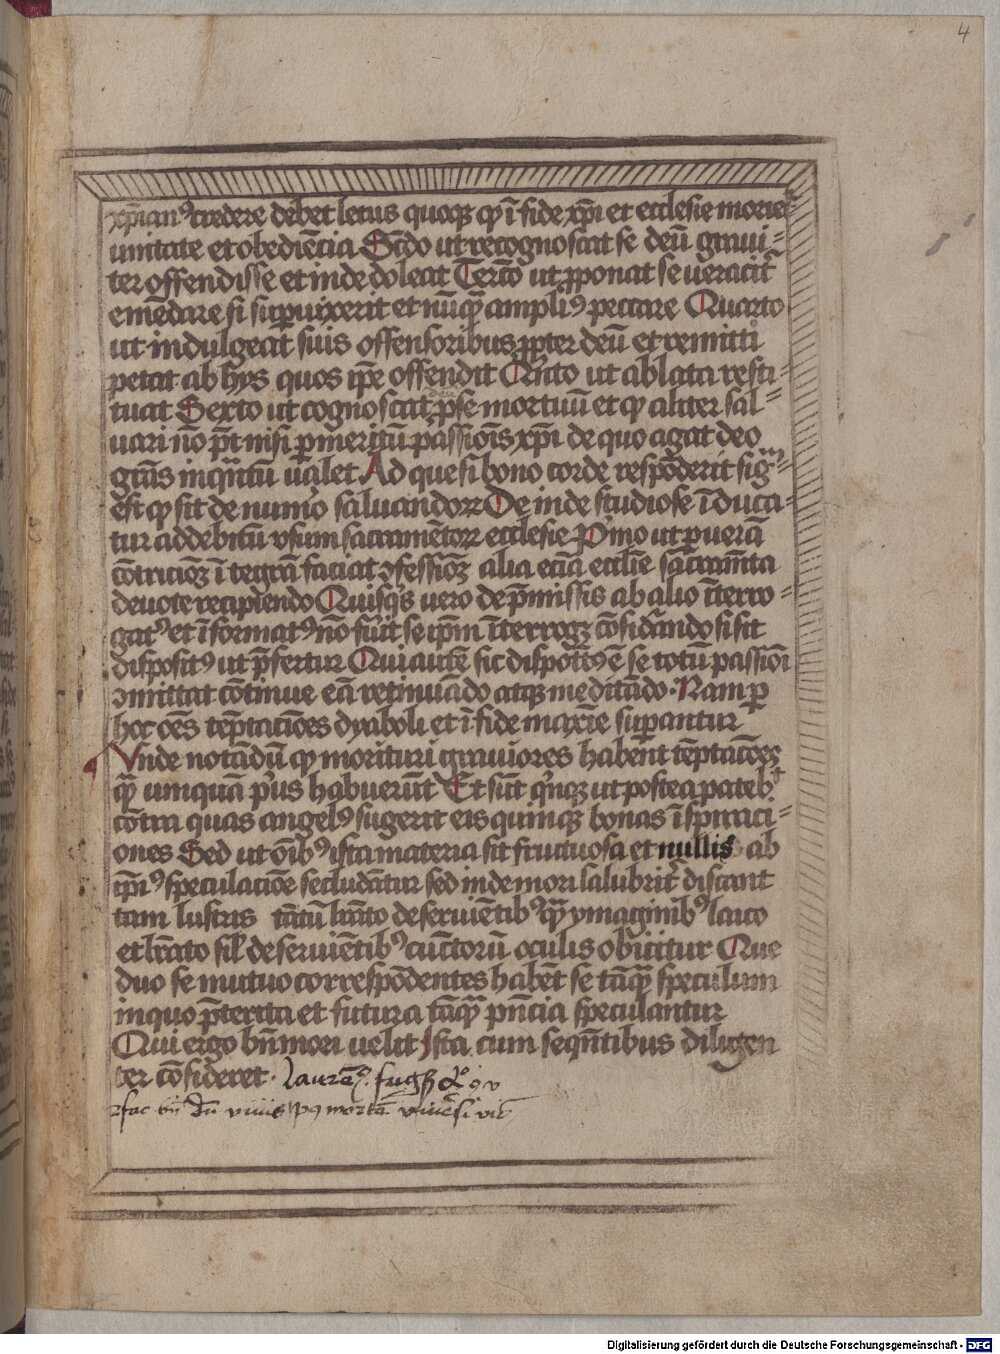 4
xp̄ian⁹ credere debet letus quoqꝫ ꝙ ī fide xp̄i et ecclesie moriet᷑
unitate et obediēcia Scd̄o ut recognoscat se deū graui⸗
ter offendisse et inde doleat Terco̅ ut ꝓponat se ueracit᷑
emēdare si suꝑuixerit et nūqꝫ̄ ampli⁹ peccare Quarto
ut indulgeat suis offensoribus ꝓpter deū et remitti
petat ab hys quos ip̄e offendit Qui̅to ut ablata resti⸗
tuat Sexto ut cognoscat ꝓ se mortuū et ꝙ aliter sal⸗
uari nō pt̄ nisi ꝑ meritū passiōis xp̄i de quo agat deo
grās inqn̄tū ualet Ad que si bono corde respōderit sigm̄⸗
est ꝙ sit de numo̅ saluandoꝝ De inde studiose īduca⸗
tur ad debitū vsum sacramētoꝝ ecclesie P̓mo ut ꝑ uerā
cōtricōꝫ ītegrā faciat ꝯfessiōꝫ alia eciā ecclīe sacramn̄ta
deuote recipiendo Quisq̓s uero de p̄missis ab alio īterro⸗
gat⁹ et īformat⁹ nō fu̓it se ip̄m īterrogꝫ cōsid̓ando si sit
disposit⁹ ut p̄fertur Qui autē sic disposit⁹ ē se totū passiōi
ꝯmittat cōtinue eā retinu̅ado atqꝫ meditādo Nam ꝑ
hoc oēs tēptaciōes dyaboli et ī fide maxīe suꝑantur
Vnde notādū ꝙ morituri grauiores habent tēptaciōes
qꝫ̄ umquā p̓us habuerūt Et sūt q̓nqꝫ ut postea pateb̓t
cōtra quas angel⁹ sugerit eis quinqꝫ bonas īspiraci⸗
ones Sed ut oīb⁹ ista materia sit fructuosa et nullis ab
ip̄i⁹ speculaciōe secludātur sed inde mori salubrit᷑ discant
tam lustris tātū lr̄ato deseruiētib⁹ qꝫ̄ ymaginib⁹ laico
et lr̄ato sil̓ deseruiētib⁹ cūctorū oculis obicitur Que
duo se mutuo correspōdentes habēt se tāqꝫ̄ speculum
in quo p̄terita et futura tāqꝫ̄ pn̄cia speculantur
Qui ergo bn̄ mori uelit Ista cum seqn̄tibus diligen
ter cōsideret
Digitalisierung gefördert durch die Deutsche Forschungsgemeinschaft - DFG